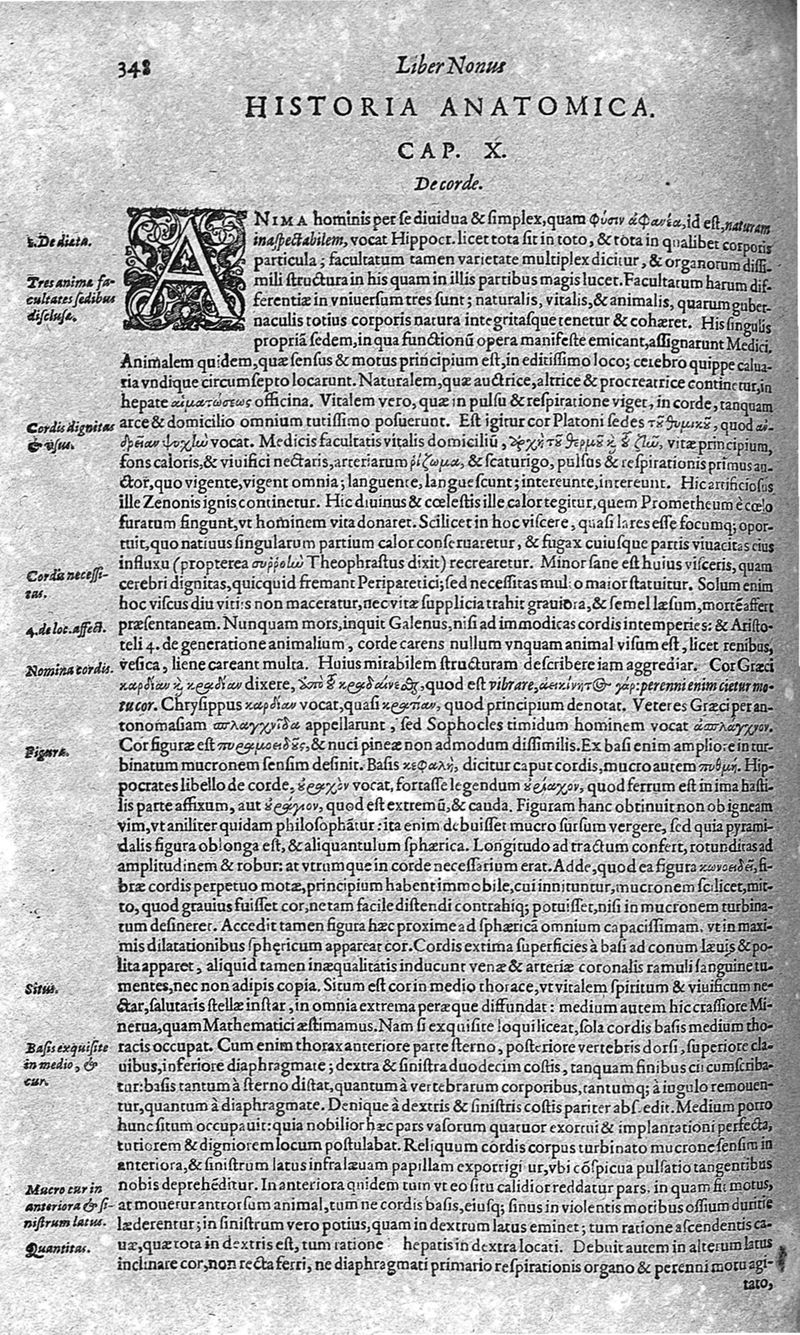 348
Liber Nonus
HISTORIA ANATOMICA.
CAP. X.
De corde.
ANIMA hominis per se diuidua & simplex, quam φύσιν ἀφανέα, id est, naturam
inaspectabilem, vocat Hippocr. licet tota sit in toto, & tota in qualibet corporis
particula; facultatum tamen varietate multiplex dicitur, & organorum dissi-
mili structura in his quam in illis partibus magis lucet. Facultatum harum dif-
ferentiæ in vniuersum tres sunt; naturalis, vitalis, & animalis, quarum guber-
naculis totius corporis natura integritasque tenetur & cohæret. His singulis
propriā sedem, in qua functionū opera manifeste emicant, assignarunt Medici.
Animalem quidem, quæ sensus & motus principium est, in editissimo loco; cerebro quippe calua-
ria vndique circumsepto locarunt. Naturalem, quæ auctrice, altrice & procreatrice continetur, in
hepate αἱματώσεως officina. Vitalem vero, quæ in pulsu & respiratione viget, in corde, tanquam
arce & domicilio omnium tutissimo posuerunt. Est igitur cor Platoni sedes τοῦ θυμικοῦ, quod ἀν-
δρείαν ψυχὴν vocat. Medicis facultatis vitalis domiciliū, ἀρχὴ τοῦ θερμοῦ καὶ τοῦ ζῆν, vitæ principium,
fons caloris, & viuifici nectaris, arteriarum ῥίζωμα, & scaturigo, pulsus & respirationis primus au-
ctor, quo vigente, vigent omnia; languente, languescunt; intereunte, intereunt. Hic artificiosus
ille Zenonis ignis continetur. Hic diuinus & cœlestis ille calor tegitur, quem Prometheum è cœlo
furatum fingunt, vt hominem vita donaret. Scilicet in hoc viscere, quasi lares esse focumq; opor-
tuit, quo natiuus singularum partium calor conseruaretur, & fugax cuiusque partis viuacitas eius
influxu (propterea Theophrastus dixit) recrearetur. Minor sane est huius visceris, quam
cerebri dignitas, quicquid fremant Peripatetici; sed necessitas multo maior statuitur. Solum enim
hoc viscus diu vitiis non maceratur, nec vitæ supplicia trahit grauiora, & semel læsum, mortē affert
præsentaneam. Nunquam mors, inquit Galenus, nisi ad immodicas cordis intemperies: & Aristo-
teli 4. de generatione animalium, corde carens nullum vnquam animal visum est, licet renibus,
vesica, liene careant multa. Huius mirabilem structuram describere iam aggrediar. Cor Græci
καρδίαν καὶ κραδίαν dixere, ἀπὸ τοῦ κραδαίνεσθαι, quod est vibrare, ἀεικίνητος γάρ: perenni enim cietur mo-
tu cor. Chrysippus καρδίαν vocat, quasi κρατίαν, quod principium denotat. Veteres Græci per an-
tonomasiam σπλαγχνίδα appellarunt, sed Sophocles timidum hominem vocat ἄσπλαγχνον.
Cor figuræ est πυραμοειδοῦς, & nuci pineæ non admodum dissimilis. Ex basi enim ampliore in tur-
binatum mucronem sensim desinit. Basis κεφαλὴ, dicitur caput cordis, mucro autem πυθμὴ. Hip-
pocrates libello de corde, οὐραχὸν vocat, fortasse legendum οὐρίαχον, quod ferrum est in ima hasti-
lis parte affixum, aut οὐράγιον, quod est extremū, & cauda. Figuram hanc obtinuit non ob igneam
vim, vt aniliter quidam philosophātur: ita enim debuisset mucro sursum vergere, sed quia pyrami-
dalis figura oblonga est, & aliquantulum sphærica. Longitudo ad tractum confert, rotunditas ad
amplitudinem & robur: at vtrumque in corde necessarium erat. Adde, quod ea figura κωνοειδεῖ, fi-
bræ cordis perpetuo motæ, principium habent immobile, cui innituntur, mucronem scilicet, mit-
to, quod grauius fuisset cor, net am facile distendi contrahiq; potuisset, nisi in mucronem turbina-
tum desineret. Accedit tamen figura hæc proxime ad sphæricā omnium capacissimam, vt in maxi-
mis dilatationibus sphęricum appareat cor. Cordis extima superficies à basi ad conum læuis & po-
lita apparet, aliquid tamen inæqualitatis inducunt venæ & arteriæ coronalis ramuli sanguine tu-
mentes, nec non adipis copia. Situm est cor in medio thorace, vt vitalem spiritum & viuificum ne-
ctar, salutaris stellæ instar, in omnia extrema peræque diffundat: medium autem hic crassiore Mi-
nerua, quam Mathematici æstimamus. Nam si exquisite loqui liceat, sola cordis basis medium tho-
racis occupat. Cum enim thorax anteriore parte sterno, posteriore vertebris dorsi, superiore cla-
uibus, inferiore diaphragmate; dextra & sinistra duodecim costis, tanquam finibus circumscriba-
tur: basis tantum à sterno distat, quantum à vertebrarum corporibus, tantumq; à iugulo remouen-
tur, quantum à diaphragmate. Denique à dextris & sinistris costis pariter abscedit. Medium porro
hunc situm occupauit: quia nobilior hæc pars vasorum quatuor exortui & implantationi perfecta,
tutiorem & digniorem locum postulabat. Reliquum cordis corpus turbinato mucrone sensim in
anteriora, & sinistrum latus infra læuam papillam exporrigitur, vbi cōspicua pulsatio tangentibus
nobis deprehēditur. In anteriora quidem tum vt eo situ calidior reddatur pars, in quam fit motus,
at mouetur antrorsum animal, tum ne cordis basis, eiusq; sinus in violentis motibus ossium duritie
læderentur; in sinistrum vero potius, quam in dextrum latus eminet; tum ratione ascendentis ca-
uæ, quæ tota in dextris est, tum ratione hepatis in dextra locati. Debuit autem in alterum latus
inclinare cor, non recta ferri, ne diaphragmati primario respirationis organo & perenni motu agi-
tato,
1. De diæta.
Tres animæ fa-
cultates sedibus
disclusæ.
Cordis dignitas
& vsus.
Cordis necessi-
tas.
4. de loc. affect.
Nomina cordis.
Figura.
Situs.
Basis exquisite
in medio, &
cur.
Mucro cur in
anteriora & si-
nistrum latus.
Quantitas.